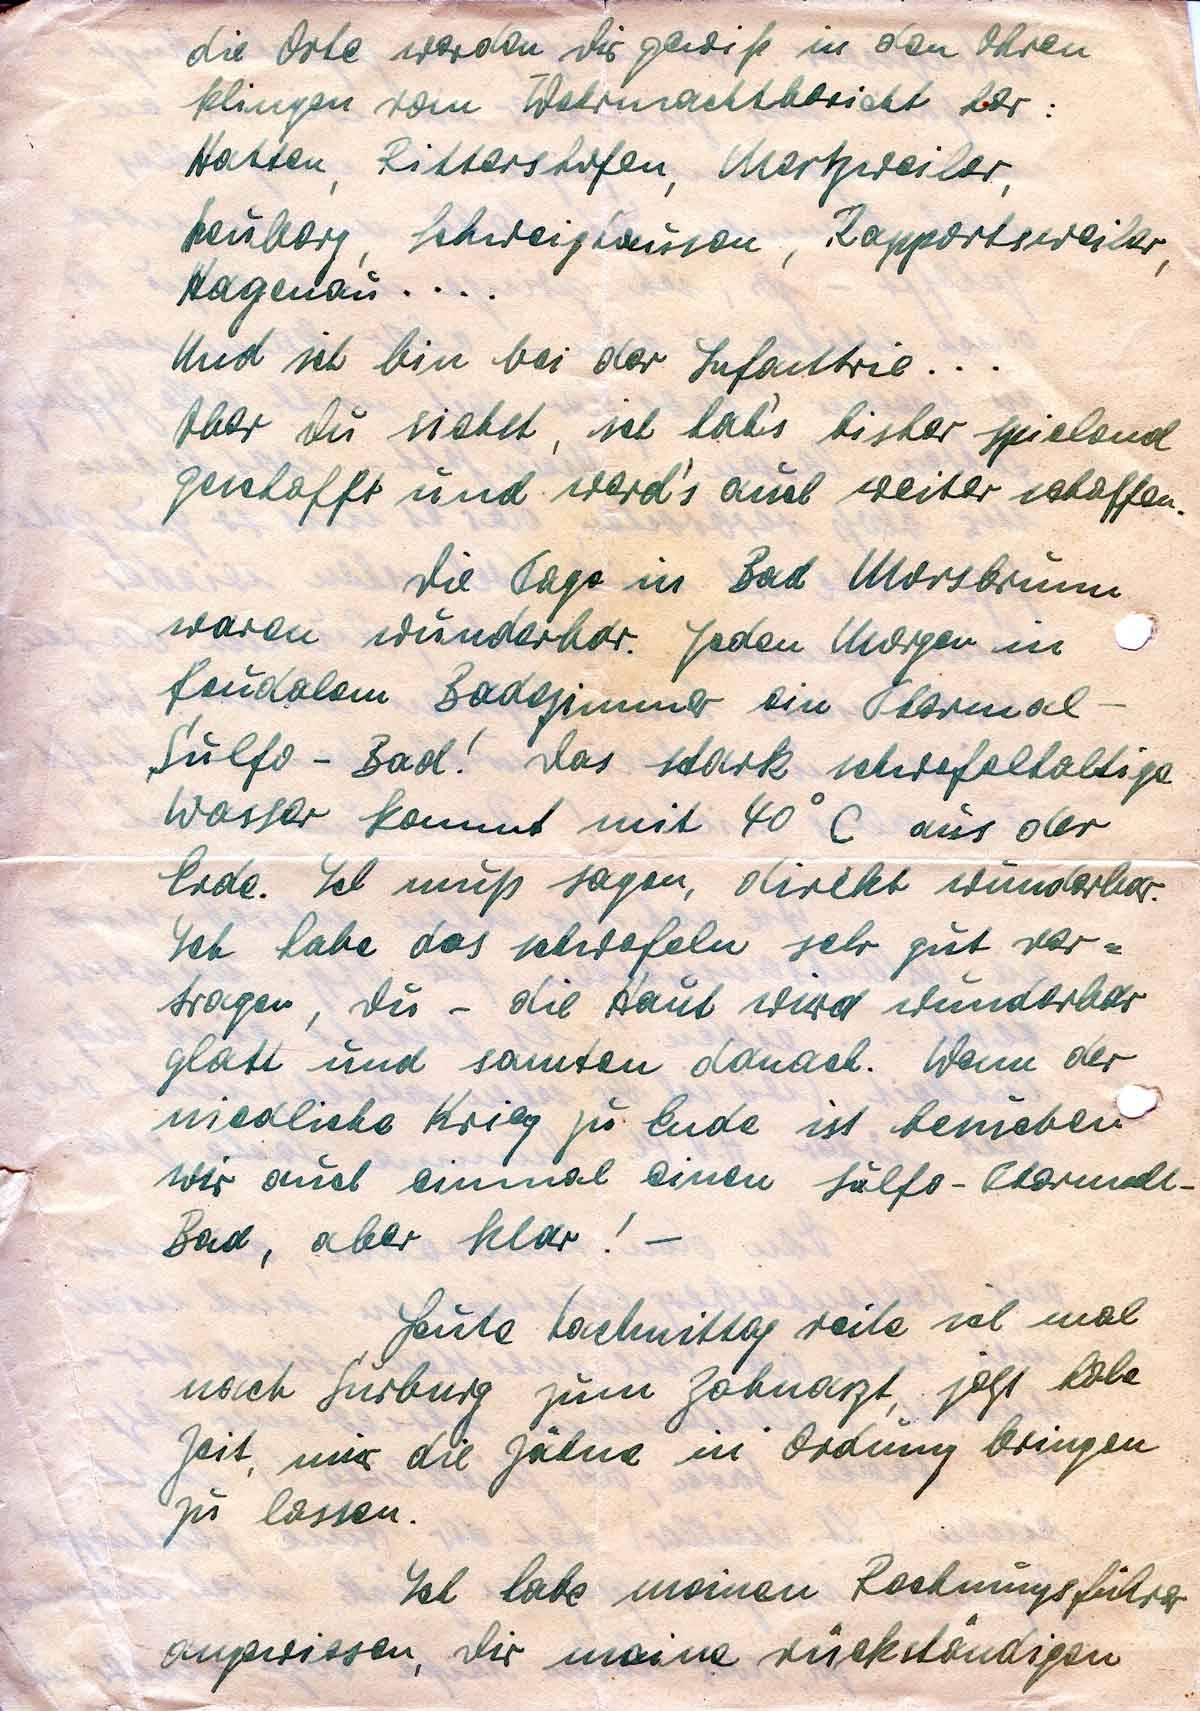 die Orte werden Dir gewiß in den Ohren
klingen vom Wehrmachtbericht her:
Hatten, Rittershofen, Mertzweiler,
Neuberg, Schweighausen, Rappertsweiler,
Hagenau....
Und ich bin bei der Infantrie...
Aber Du siehst, ich hab's bisher spielend
geschafft und werd's auch weiter schaffen.
Die Tage in Bad Morsbrunn
waren wunderbar. Jeden Morgen in
feudalem Badezimmer ein Thermal-
Sulfo-Bad! Das stark schwefelhaltige
Wasser kommt mit 40° C aus der
Erde. Ich muß sagen, direkt wunderbar.
Ich habe das schwefeln sehr gut ver=
tragen, Du - die Haut wird wunderbar
glatt und samten danach. Wenn der
niedliche Krieg zu Ende ist besuchen
wir auch einmal einen Sulfo-Thermal-
Bad, aber klar! -
Heute nachmittag reite ich mal
nach Surburg zum Zahnarzt, jetzt habe
Zeit, mir die Zähne in Ordnung bringen
zu lassen.
Ich habe meinen Rechnungsführer
angewiesen, Dir meine rückständigen